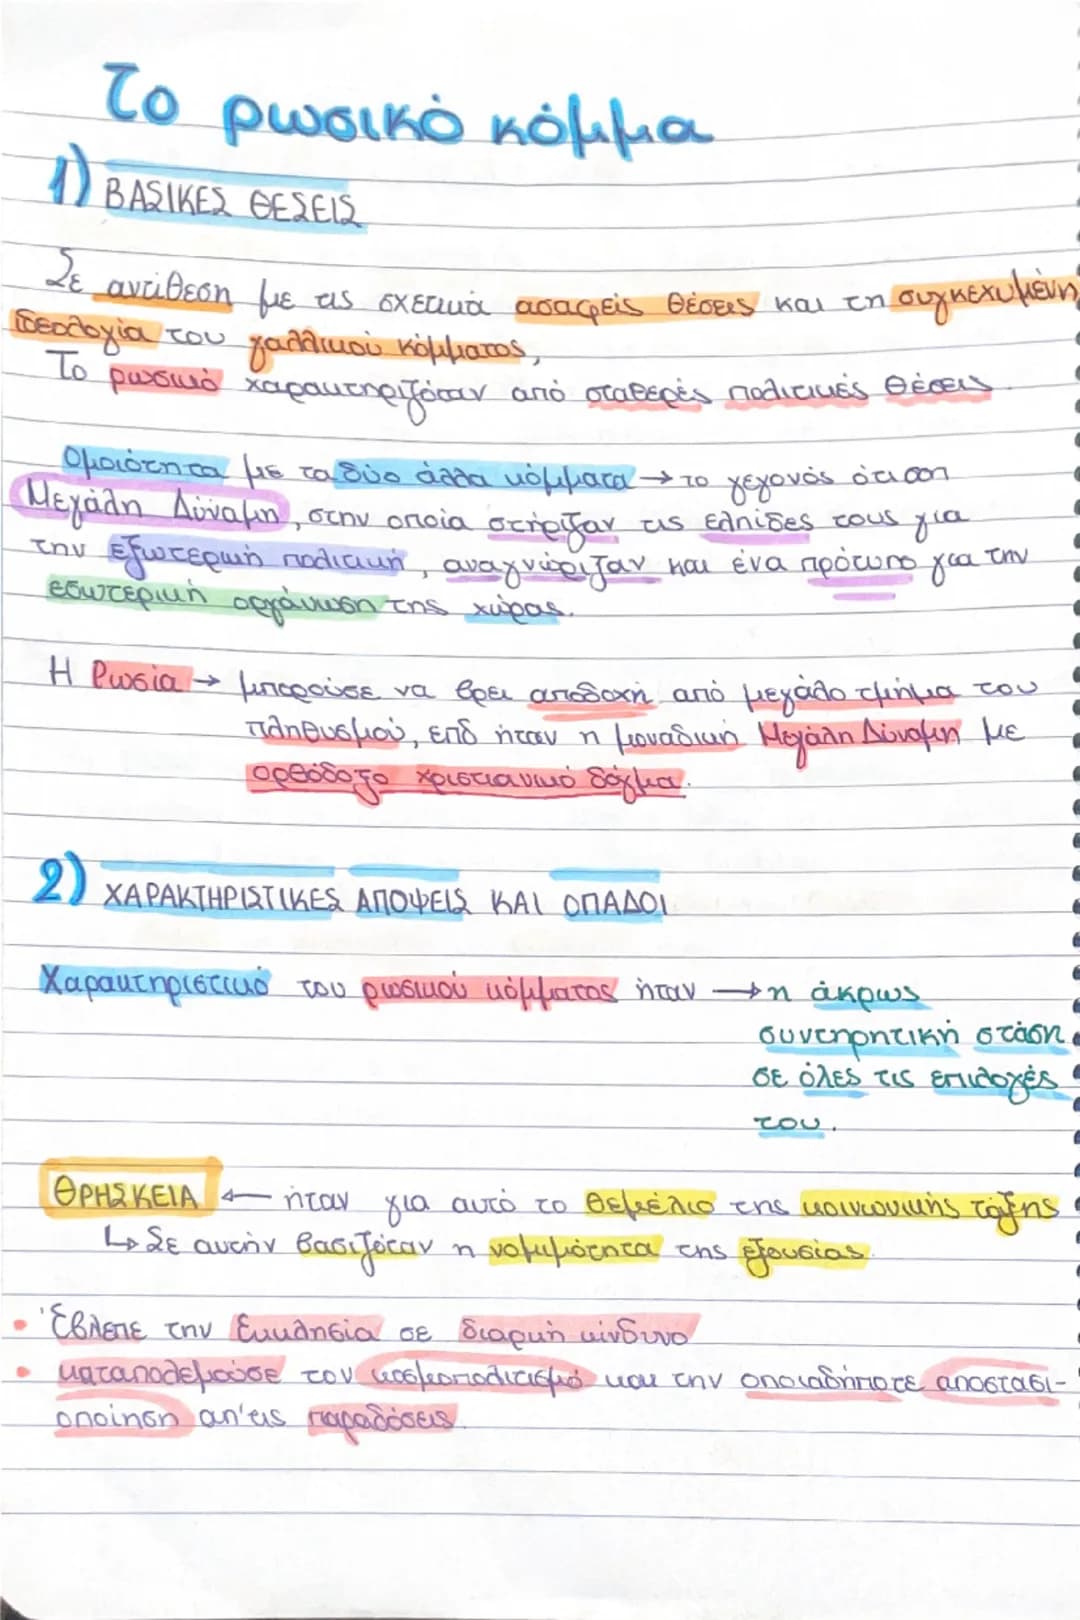 Το ρωσικό κόμμα
1) ΒΑΣΙΚΕΣ ΘΕΣΕΙΣ
Σε αντίθεση με τις σχετικά ασαφείς θέσεις και τη συγκεχυμένη
ιδεολογία του γαλλικού κόμματος,
Το ρωσικό χαρακτηριζόταν από σταθερές πολιτικές θέσεις
Ομοιότητα με τα δύο άλλα κόμματα → το γεγονός ότι στη
Μεγάλη Δύναμη, στην οποία στήριζαν τις ελπίδες τους για
την εξωτερική πολιτική, αναγνώριζαν και ένα πρότυπο για την
εσωτερική οργάνωση της χώρας.
Η Ρωσία → μπορούσε να βρει αποδοχή από μεγάλο τμήμα του
πληθυσμού, επδ ήταν η μοναδική Μεγάλη Δύναμη με
ορθόδοξο χριστιανικό δόγμα.
2) ΧΑΡΑΚΤΗΡΙΣΤΙΚΕΣ ΑΠΟΨΕΙΣ ΚΑΙ ΟΠΑΔΟΙ
Χαρακτηριστικό του ρωσικού κόμματος ήταν → η άκρως
συντηρητική στάση
σε όλες τις επιλογές
του.
ΘΡΗΣΚΕΙΑ ← ήταν για αυτό το θεμέλιο της κοινωνικής τάξης
↳ Σε αυτήν βασιζόταν η νομιμότητα της εξουσίας.
• Έβλεπε την Εκκλησία σε διαρκή κίνδυνο
• καταπολεμούσε τον κοσμοπολιτισμό και την οποιαδήποτε αποστασι-
οποίηση απ'τις παραδόσεις.